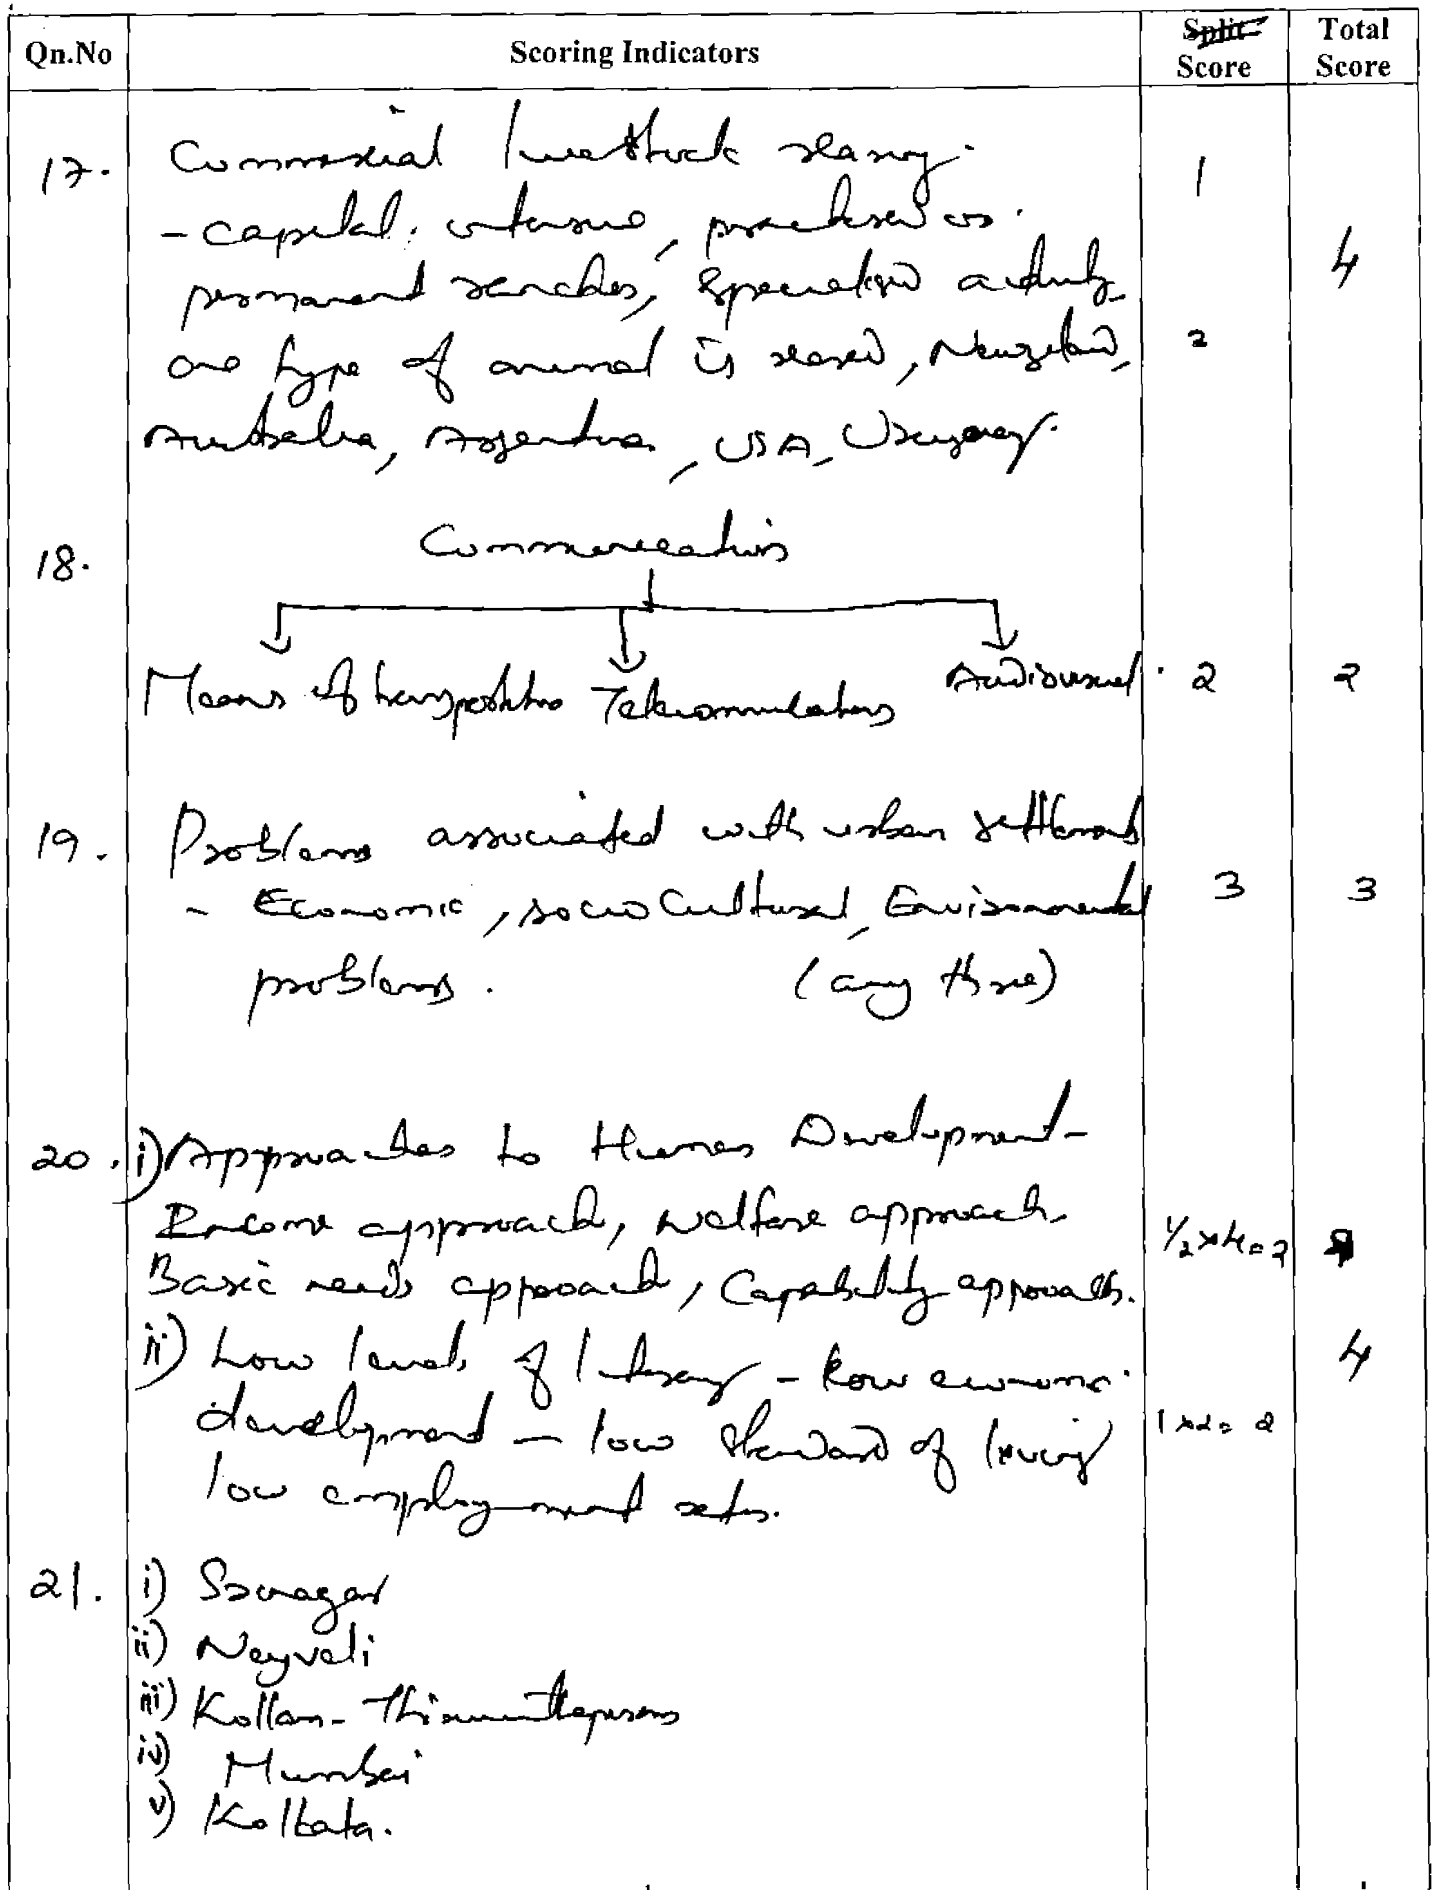 Qn.No Scoring Indicators Split Score Total Score
17. Commercial livestock rearing. 1
- capital intensive, practised in 4
permanent ranches, specialised activity
one type of animal is reared, Newzeland, 2
Australia, Argentina, USA, Uruguay.
18. Communications
Means of transportation Telecommunications Audiovisual 2 2
19. Problems associated with urban settlements
- Economic, socio Cultural, Environmental 3 3
problems. (any three)
20. i) Approaches to Human Development-
Income approach, Welfare approach, 1/2x4=2
Basic needs approach, Capability approach.
ii) Low levels of literacy - low economic 4
development - low standard of living 1x2=2
low employment rates.
21. i) Srinagar
ii) Neyveli
iii) Kollam-Thiruvanthapuram
iv) Mumbai
v) Kolkata.